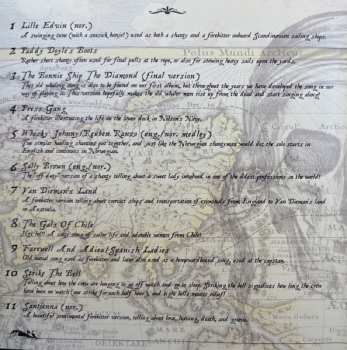 Polus Mundi Arctico
1 Lille Edvin (nor.)
A swinging tune (with a seasick banjo!) used as both a shanty and a forebitter onboard Scandinavian sailing ships.
2 Paddy Doyle's Boots
Rather short shanty often used for final pulls at the rope, or also for stowing heavy sails upon the yards.
3 The Bonnie Ship The Diamond (final version)
This old whaling song is also to be found on our first album, but throughout the years we have developed the song in our
way of playing it. This version hopefully makes the old whaler men rise up from the dead and start singing along!
4 Press Gang
A forebitter illustrating the life on the lower deck in Nelson's Navy.
5 Whisky Johnny/Reuben Ranzo (eng./nor. medley)
Two similar hauling shanties put together, and just like the Norwegian shantymen would do: the solo starts in
English and continues in Norwegian.
6 Sally Brown (eng./nor.)
The "off duty" version of a shanty telling about a sweet lady involved in one of the oldest professions in the world!
7 Van Dieman's Land
A forebitter version telling about convict ships and transportation of criminals from England to Van Dieman's land
in Australia.
8 The Gals Of Chile
Hot hell! A sexy song of sailor life and adorable women from Chile!
9 Farewell And Adieu/Spanish Ladies
Old naval song used as forebitter and later also used as a homewardbound song, used at the capstan.
10 Strike The Bell
Telling about how the crew are longing to go off watch and go to sleep. Striking the bell signalizes how long the crew
have been on watch (one strike for each half hour), and eight bells means relief!
11 Santianna (nor.)
A beautiful sentimental forebitter version, telling about love, hatred, death, and graves.
MARE
ORIENTALE